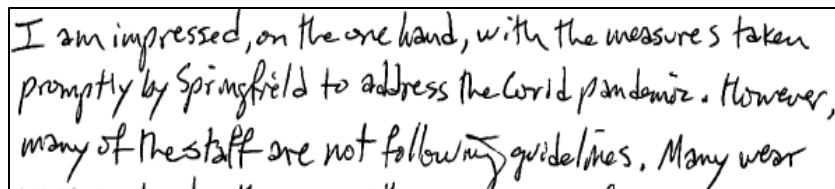 I am impressed, on the one hand, with the measures taken
promptly by Springfield to address the Covid pandemic. However,
many of the staff are not following guidelines. Many wear